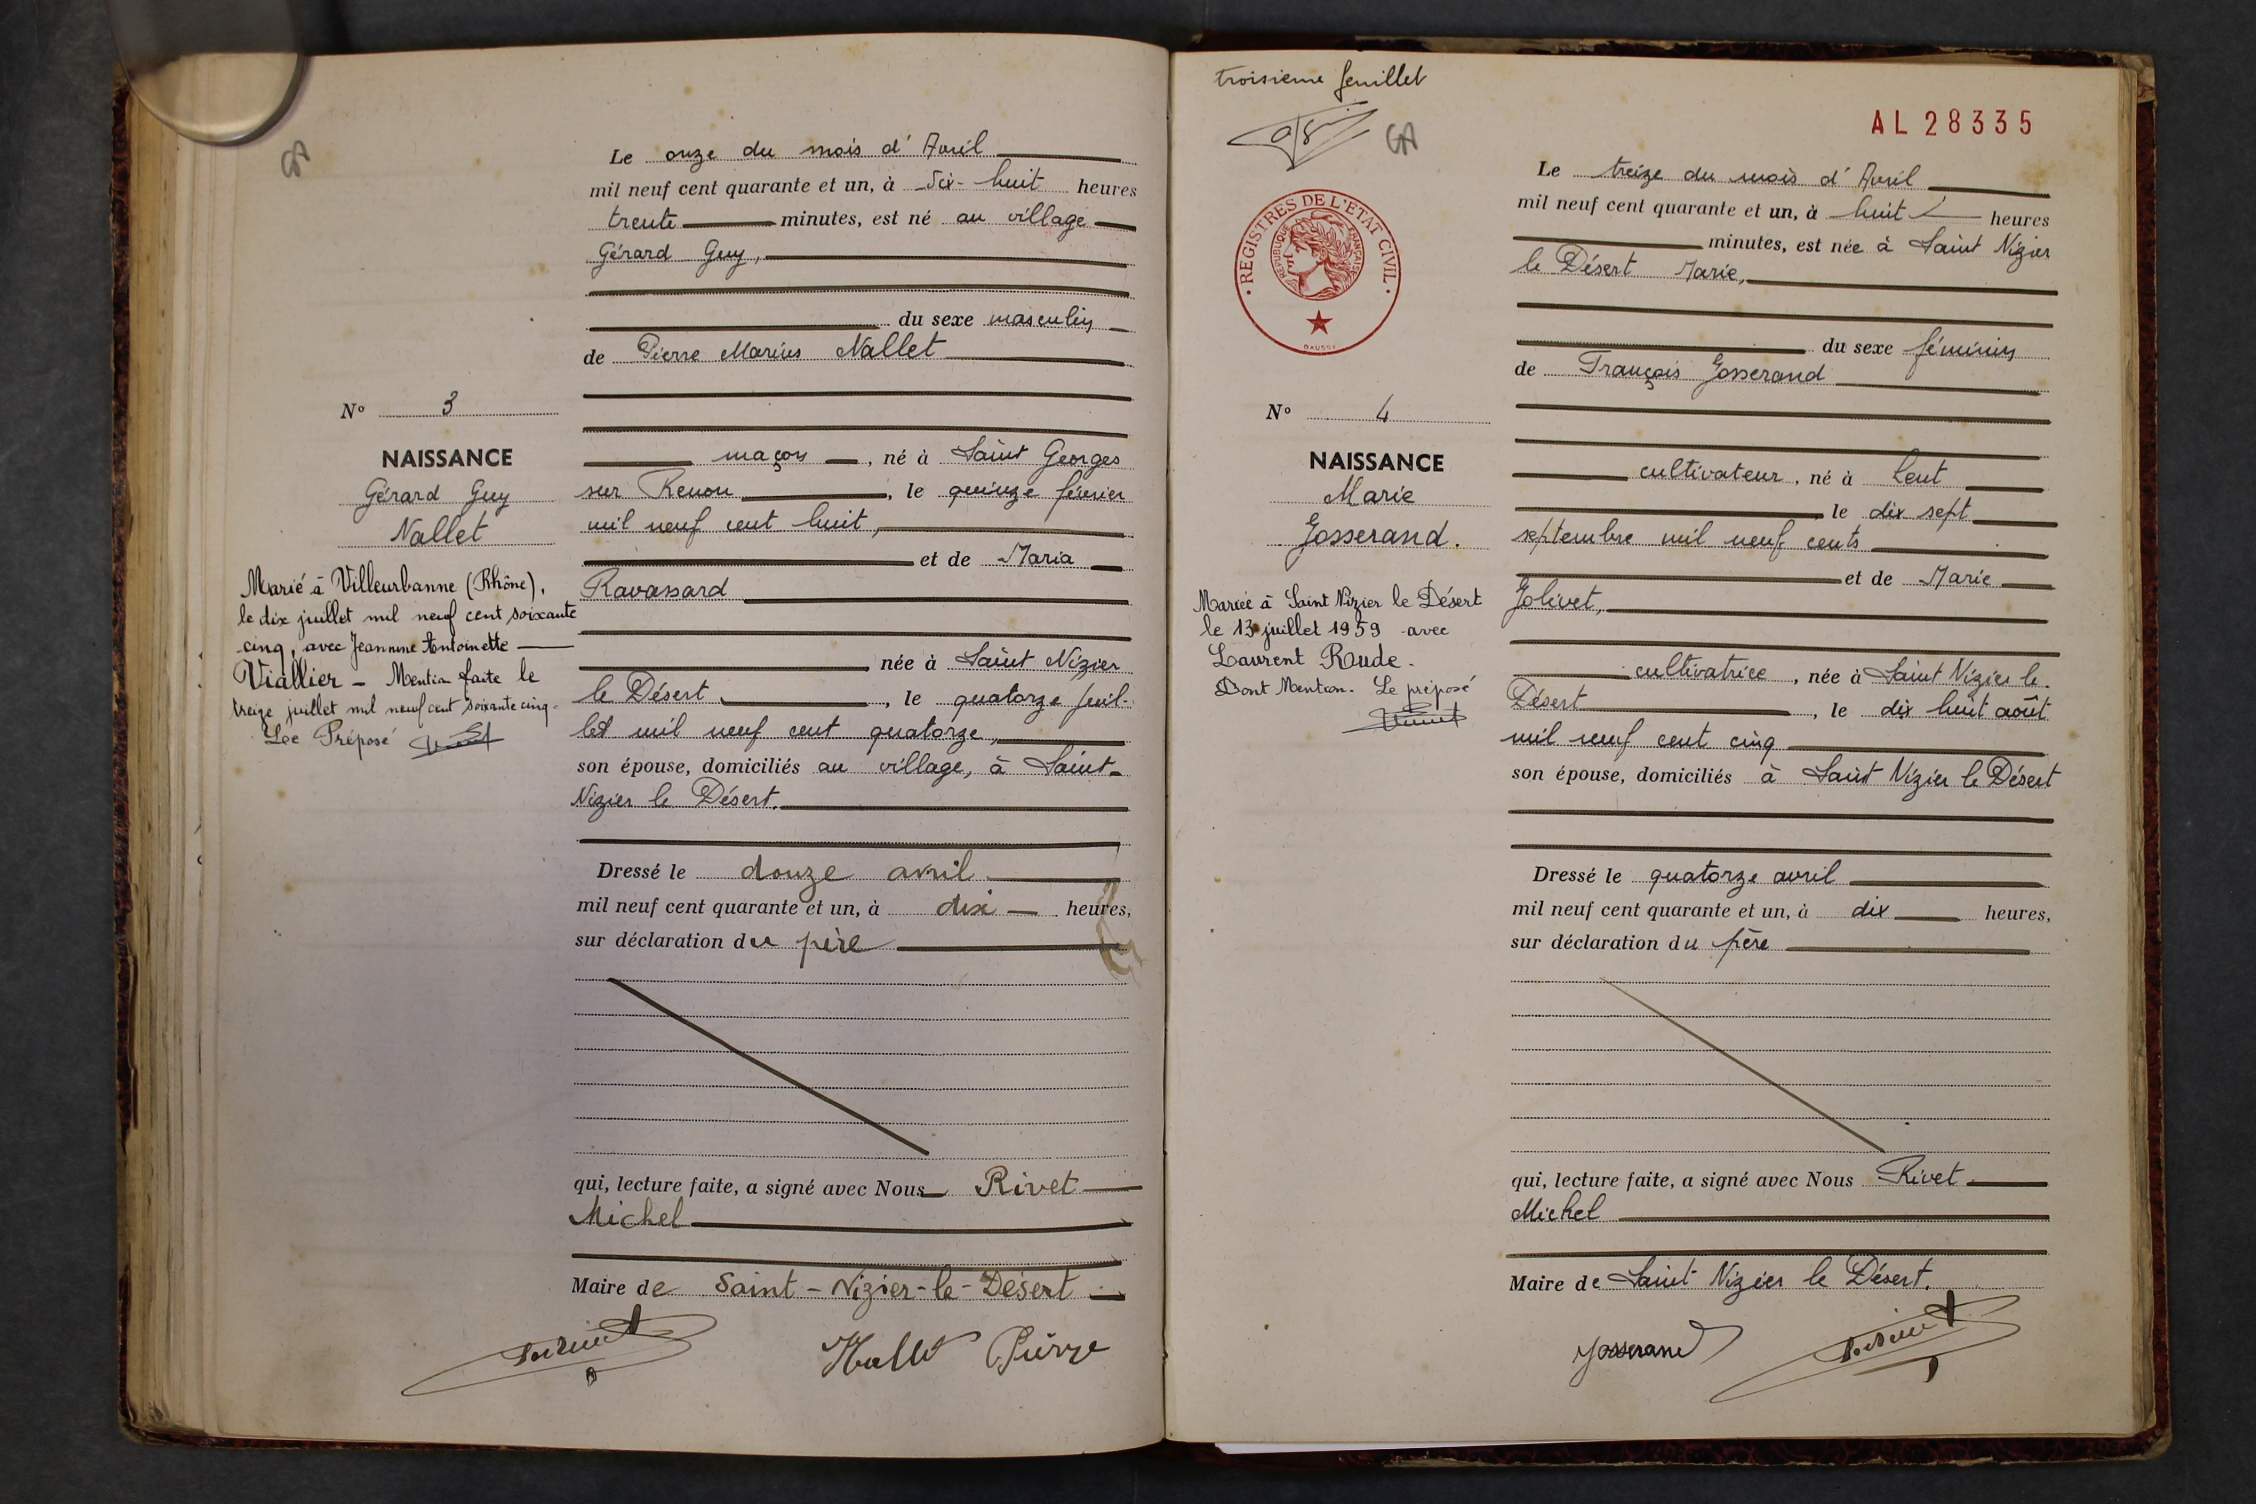 Le onze du mois d'Avril
mil neuf cent quarante et un, à dix-huit heures
trente minutes, est né au village
Gérard Guy,
du sexe masculin
de Pierre Marius Nallet
N° 3
NAISSANCE
Gérard Guy
Nallet
maçon, né à Saint Georges
sur Renon, le quinze février
mil neuf cent huit,
et de Maria
Ravassard
née à Saint Nizier
le Désert, le quatorze juil-
let mil neuf cent quatorze,
son épouse, domiciliés au village, à Saint-
Nizier le Désert.
Marié à Villeurbanne (Rhône),
le dix juillet mil neuf cent soixante
cinq, avec Jeannine Antoinette
Viallier - Mention faite le
treize juillet mil neuf cent soixante cinq-
Le Préposé
Dressé le douze avril
mil neuf cent quarante et un, à dix heures,
sur déclaration du père
qui, lecture faite, a signé avec Nous Rivet
Michel
Maire de Saint-Nizier-le-Désert
Nallet Pierre
troisième feuillet
AL 28335
REGISTRES DE L'ETAT CIVIL
REPUBLIQUE FRANÇAISE
DAUSSY
Le treize du mois d'Avril
mil neuf cent quarante et un, à huit heures
minutes, est née à Saint Nizier
le Désert Marie,
du sexe féminin
de François Josserand
N° 4
NAISSANCE
Marie
Josserand.
cultivateur, né à Lent
le dix sept
septembre mil neuf cents
et de Marie
Jolivet,
cultivatrice, née à Saint Nizier le
Désert, le dix huit août
mil neuf cent cinq
son épouse, domiciliés à Saint Nizier le Désert
Mariée à Saint Nizier le Désert
le 13 juillet 1959 avec
Laurent Rude.
Dont Mention. Le préposé
Dressé le quatorze avril
mil neuf cent quarante et un, à dix heures,
sur déclaration du père
qui, lecture faite, a signé avec Nous Rivet
Michel
Maire de Saint Nizier le Désert.
Josserand